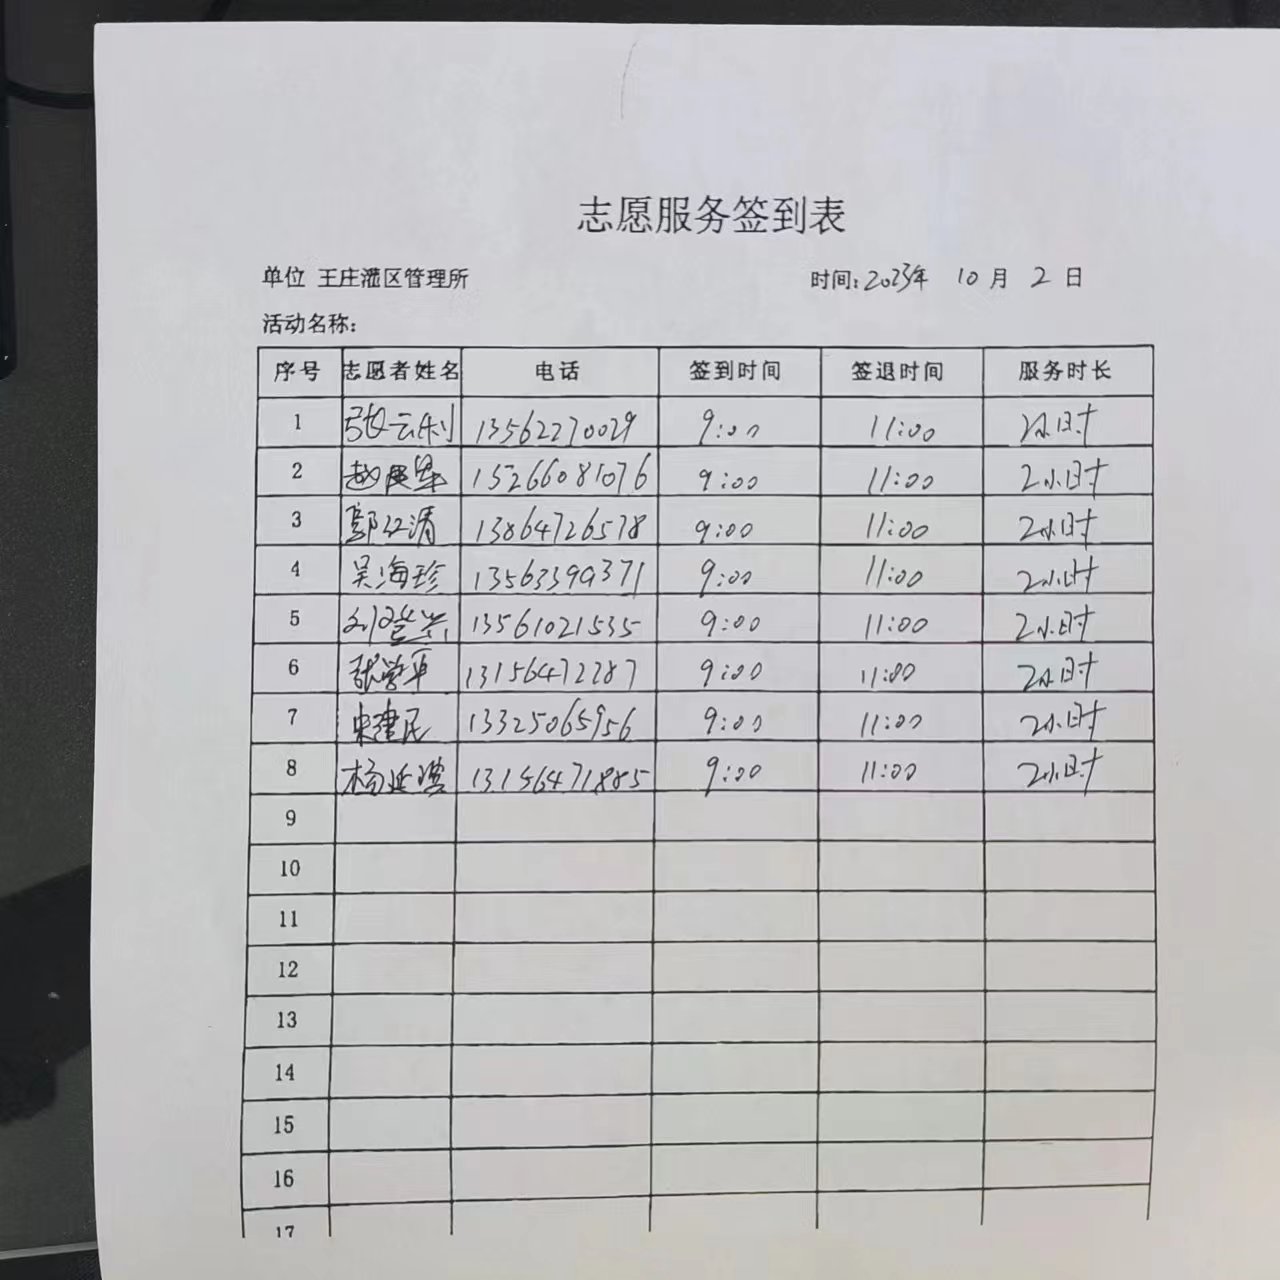 志愿服务签到表
单位 王庄灌区管理所 时间:2023年 10月 2日
活动名称:
序号 志愿者姓名 电话 签到时间 签退时间 服务时长
1 张云利 13562270029 9:00 11:00 2小时
2 15266081076 9:00 11:00 2小时
3 鄢红清 13864726578 9:00 11:00 2小时
4 吴海珍 13563399371 9:00 11:00 2小时
5 刘登兴 13561021535 9:00 11:00 2小时
6 张学平 13156472287 9:00 11:00 2小时
7 宋建民 13325065956 9:00 11:00 2小时
8 杨延琪 13156471885 9:00 11:00 2小时
9
10
11
12
13
14
15
16
17